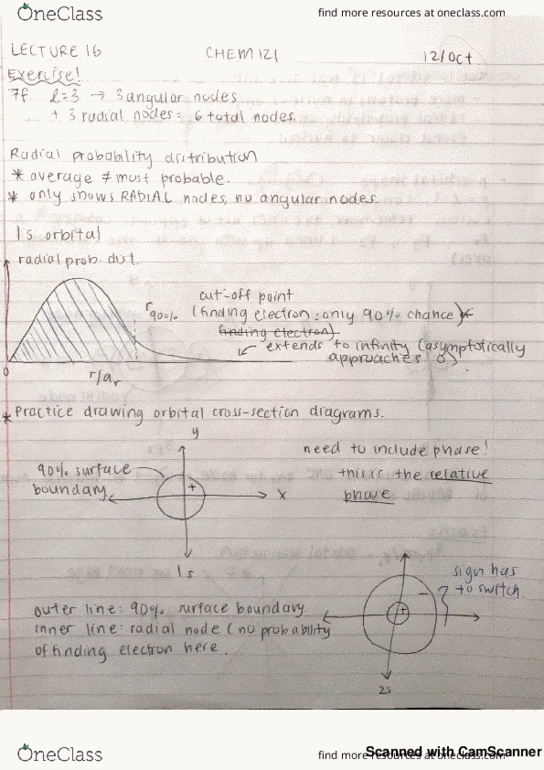 OneClass
find more resources at oneclass.com
LECTURE 16 CHEM 121 12/Oct
Exercise!
7f l=3 → 3 angular nodes
+ 3 radial nodes = 6 total nodes.
Radial probability distribution
* average ≠ most probable.
* only shows RADIAL nodes, no angular nodes
1s orbital
radial prob. dist.
r90%
cut-off point
(finding electron: only 90% chance)
finding electron)
extends to infinity (asymptotically
approaches 0).
0
r/ar
* Practice drawing orbital cross-section diagrams.
y
need to include phase!
90% surface
boundary
this is the relative
phase
+
x
1s
sign has
to switch.
outer line: 90% surface boundary
inner line: radial node (no probability
of finding electron here.
+
-
2s
OneClass
find more resources at oneclass.com
Scanned with CamScanner